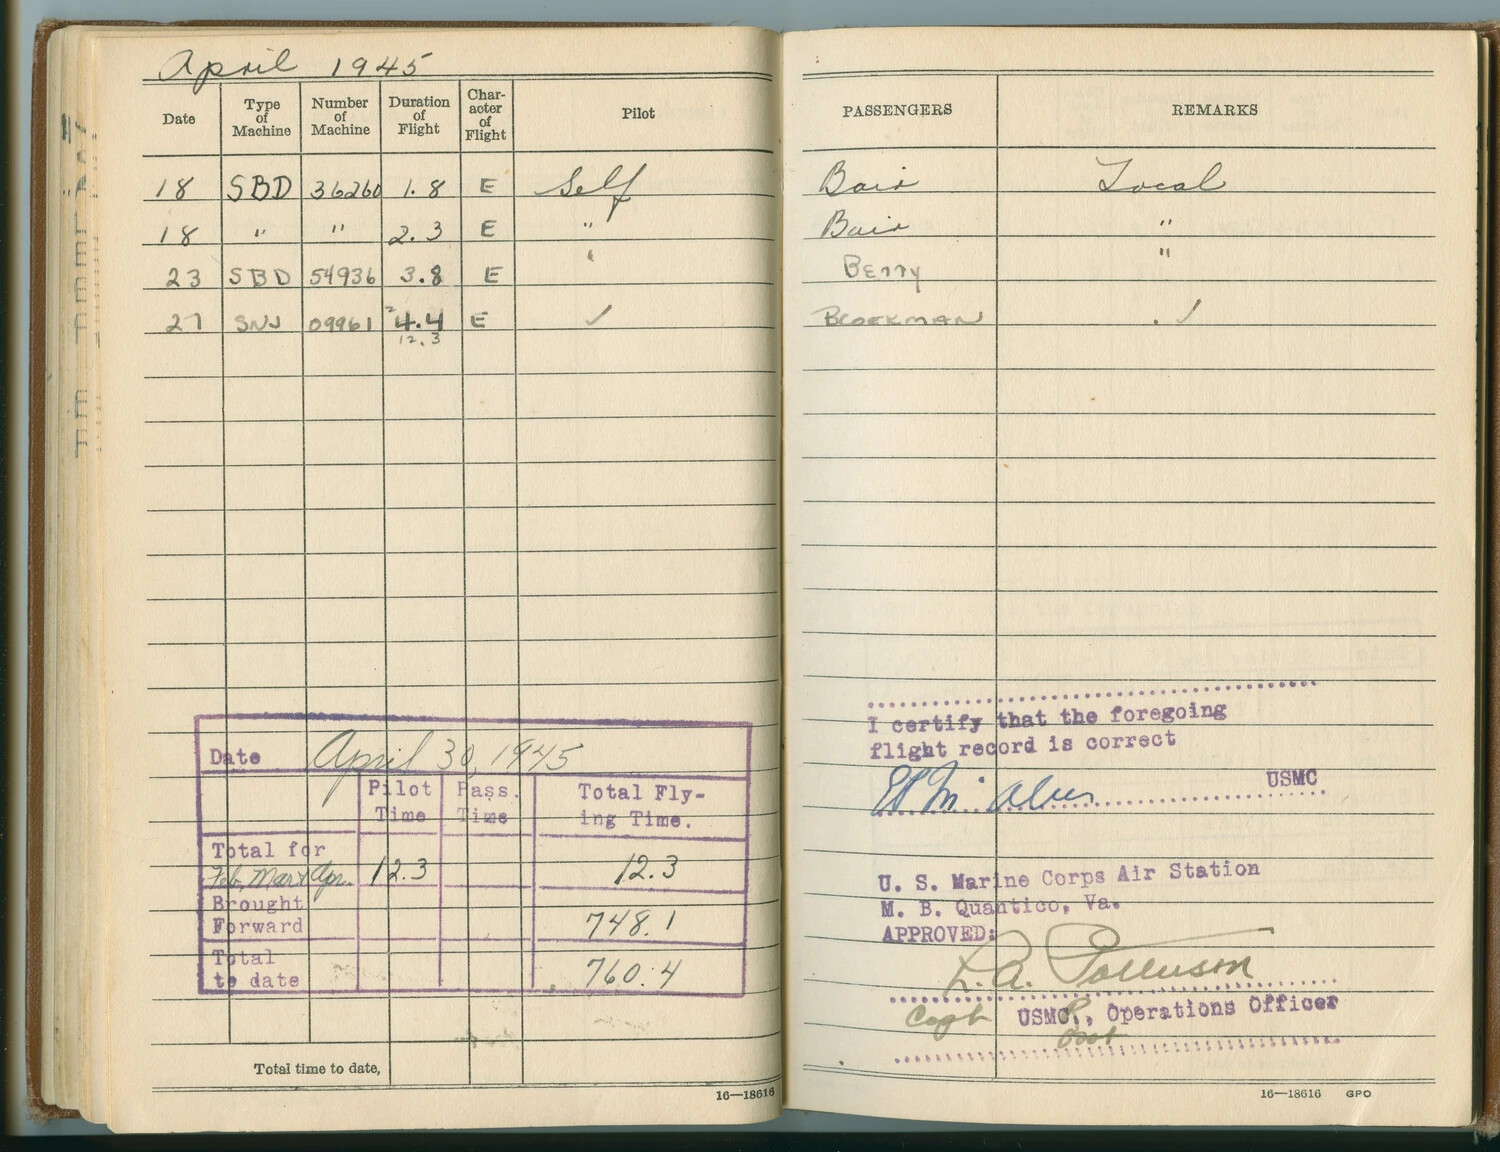 April 1945
Date Type of Machine Number of Machine Duration of Flight Char-acter of Flight Pilot PASSENGERS REMARKS
18 SBD 36260 1.8 E Self Bair Local
18 " " 2.3 E " Bair "
23 SBD 54936 3.8 E " Berry "
27 SNJ 09961 4.4 E ✓ ✓
12.3
Date April 30, 1945
Pilot Time Pass. Time Total Fly-ing Time.
Total for Feb, Mar & Apr. 12.3 12.3
Brought Forward 748.1
Total to date 760.4
Total time to date,
16—18616
I certify that the foregoing
flight record is correct
USMC
U. S. Marine Corps Air Station
M. B. Quantico, Va.
APPROVED:
Capt USMCR, Operations Officer
16—18616 GPO